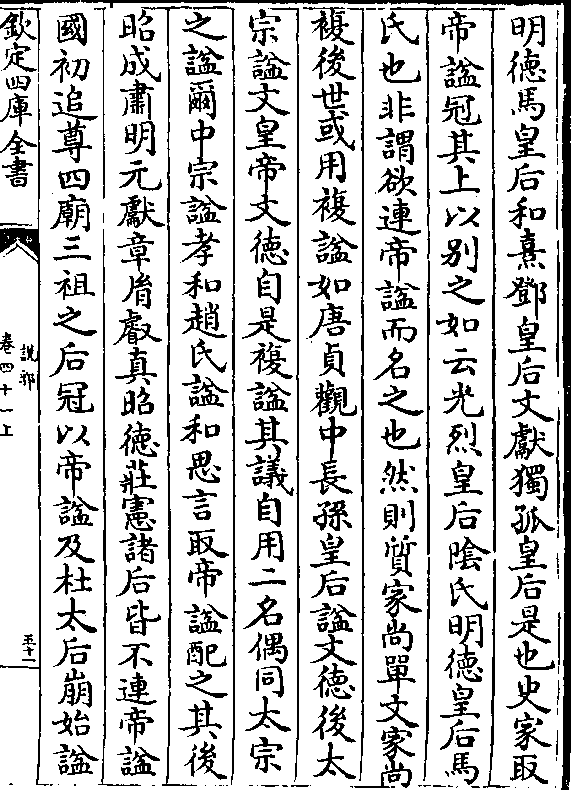 明徳馬皇后和熹鄧皇后文獻獨孤皇后是也史家取
帝諡冠其上以别之如云光烈皇后陰氏明徳皇后馬
氏也非謂欲連帝諡而名之也然則質家尚單文家尚
複後世或用複諡如唐貞觀中長孫皇后諡文徳後太
宗諡文皇帝文徳自是複諡其議自用二名偶同太宗
之諡爾中宗諡孝和趙氏諡和思言取帝諡配之其後
昭成肅明元獻章脀叡真昭徳莊憲諸后皆不連帝諡
國初追尊四廟三祖之后冠以帝諡及杜太后崩始諡
欽定四庫全書
說郛
卷四十一上
五十一